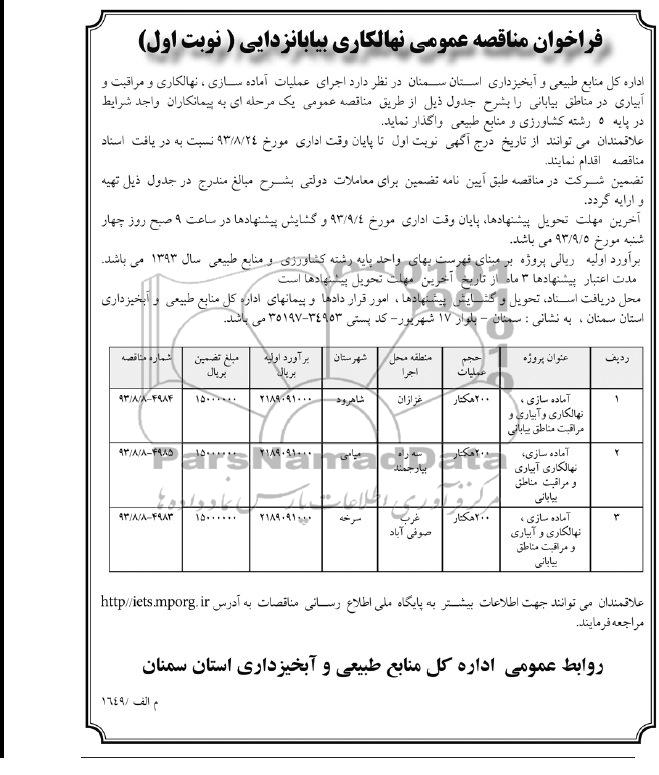 فراخوان مناقصه عمومی نهالکاری بیابانزدایی ( نوبت اول)
اداره کل منابع طبیعی و آبخیزداری استان سمنان در نظر دارد اجرای عملیات آماده سازی ، نهالکاری و مراقبت و
آبیاری در مناطق بیابانی را بشرح جدول ذیل از طریق مناقصه عمومی یک مرحله ای به پیمانکاران واجد شرایط
در پایه ۵ رشته کشاورزی و منابع طبیعی واگذار نماید.
علاقمندان می توانند از تاریخ درج آگهی نوبت اول تا پایان وقت اداری مورخ ۹۳/۸/۲۴ نسبت به در یافت اسناد
مناقصه اقدام نمایند.
تضمین شرکت در مناقصه طبق آیین نامه تضمین برای معاملات دولتی بشرح مبالغ مندرج در جدول ذیل تهیه
و ارایه گردد.
آخرین مهلت تحویل پیشنهادها، پایان وقت اداری مورخ ۹۳/۹/۴ و گشایش پیشنهادها در ساعت ۹ صبح روز چهار
شنبه مورخ ۹۳/۹/۵ می باشد.
برآورد اولیه ریالی پروژه بر مبنای فهرست بهای واحد پایه رشته کشاورزی و منابع طبیعی سال ۱۳۹۳ می باشد.
مدت اعتبار پیشنهادها ۳ ماه از تاریخ آخرین مهلت تحویل پیشنهادها است
محل دریافت اسناد، تحویل و گشایش پیشنهادها ، امور قرار دادها و پیمانهای اداره کل منابع طبیعی و آبخیزداری
استان سمنان ، به نشانی : سمنان – بلوار ۱۷ شهریور- کد پستی ۳۴۹۵۳-۳۵۱۹۷ می باشد.
ردیف عنوان پروژه حجم عملیات منطقه محل اجرا شهرستان برآورد اولیه بریال مبلغ تضمین بریال شماره مناقصه
۱ آماده سازی ، نهالکاری وآبیاری و مراقبت مناطق بیابانی ۲۰۰هکتار غزازان شاهرود ۲۱۸۹۰۹۱۰۰۰ ۱۵۰۰۰۰۰۰۰ ۹۳/۸/۸-۴۹۸۴
۲ آماده سازی، نهالکاری آبیاری و مراقبت مناطق بیابانی ۲۰۰هکتار سه راه بیارجمند میامی ۲۱۸۹۰۹۱۰۰۰ ۱۵۰۰۰۰۰۰۰ ۹۳/۸/۸-۴۹۸۵
۳ آماده سازی ، نهالکاری و آبیاری و مراقبت مناطق بیابانی ۲۰۰هکتار غرب صوفی آباد سرخه ۲۱۸۹۰۹۱۰۰۰ ۱۵۰۰۰۰۰۰۰ ۹۳/۸/۸-۴۹۸۳
ParsNamadData
مرکز فرآوری اطلاعات پارس نماد داده ها
علاقمندان می توانند جهت اطلاعات بیشتر به پایگاه ملی اطلاع رسانی مناقصات به آدرس http//iets.mporg.ir
مراجعه فرمایند.
روابط عمومی اداره کل منابع طبیعی و آبخیزداری استان سمنان
م الف /۱۶۴۹